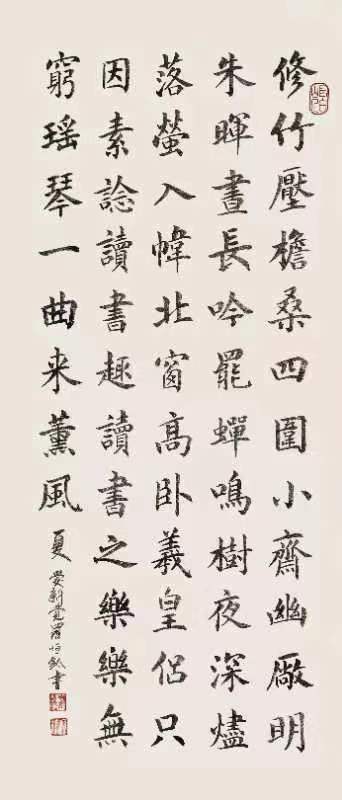 修竹壓檐桑四圍小齋幽厰明
朱暉晝長吟罷蟬鳴樹夜深燼
落螢入幃北窗高卧羲皇侣只
因素諗讀書趣讀書之樂樂無
窮瑶琴一曲来薰風
夏 愛新覺羅恒書